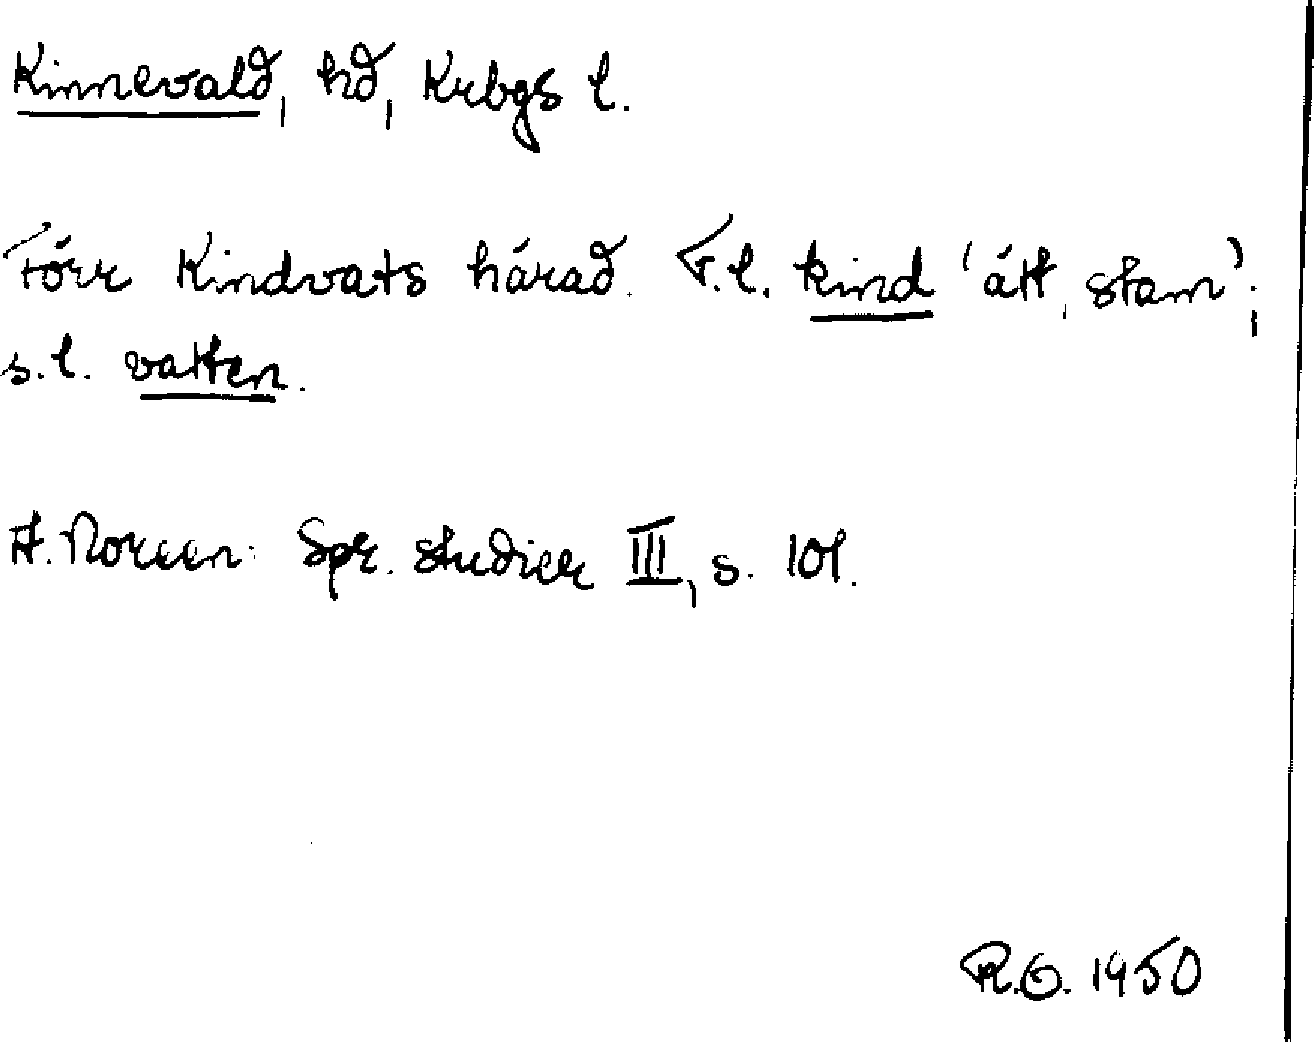 Kinnevald, hd, Krbgs l.
Förr Kindvats härad. F.l. kind 'ätt, stam';
s.l. vatten.
A. Noreen: Spr. studier III, s. 101.
R.O. 1950